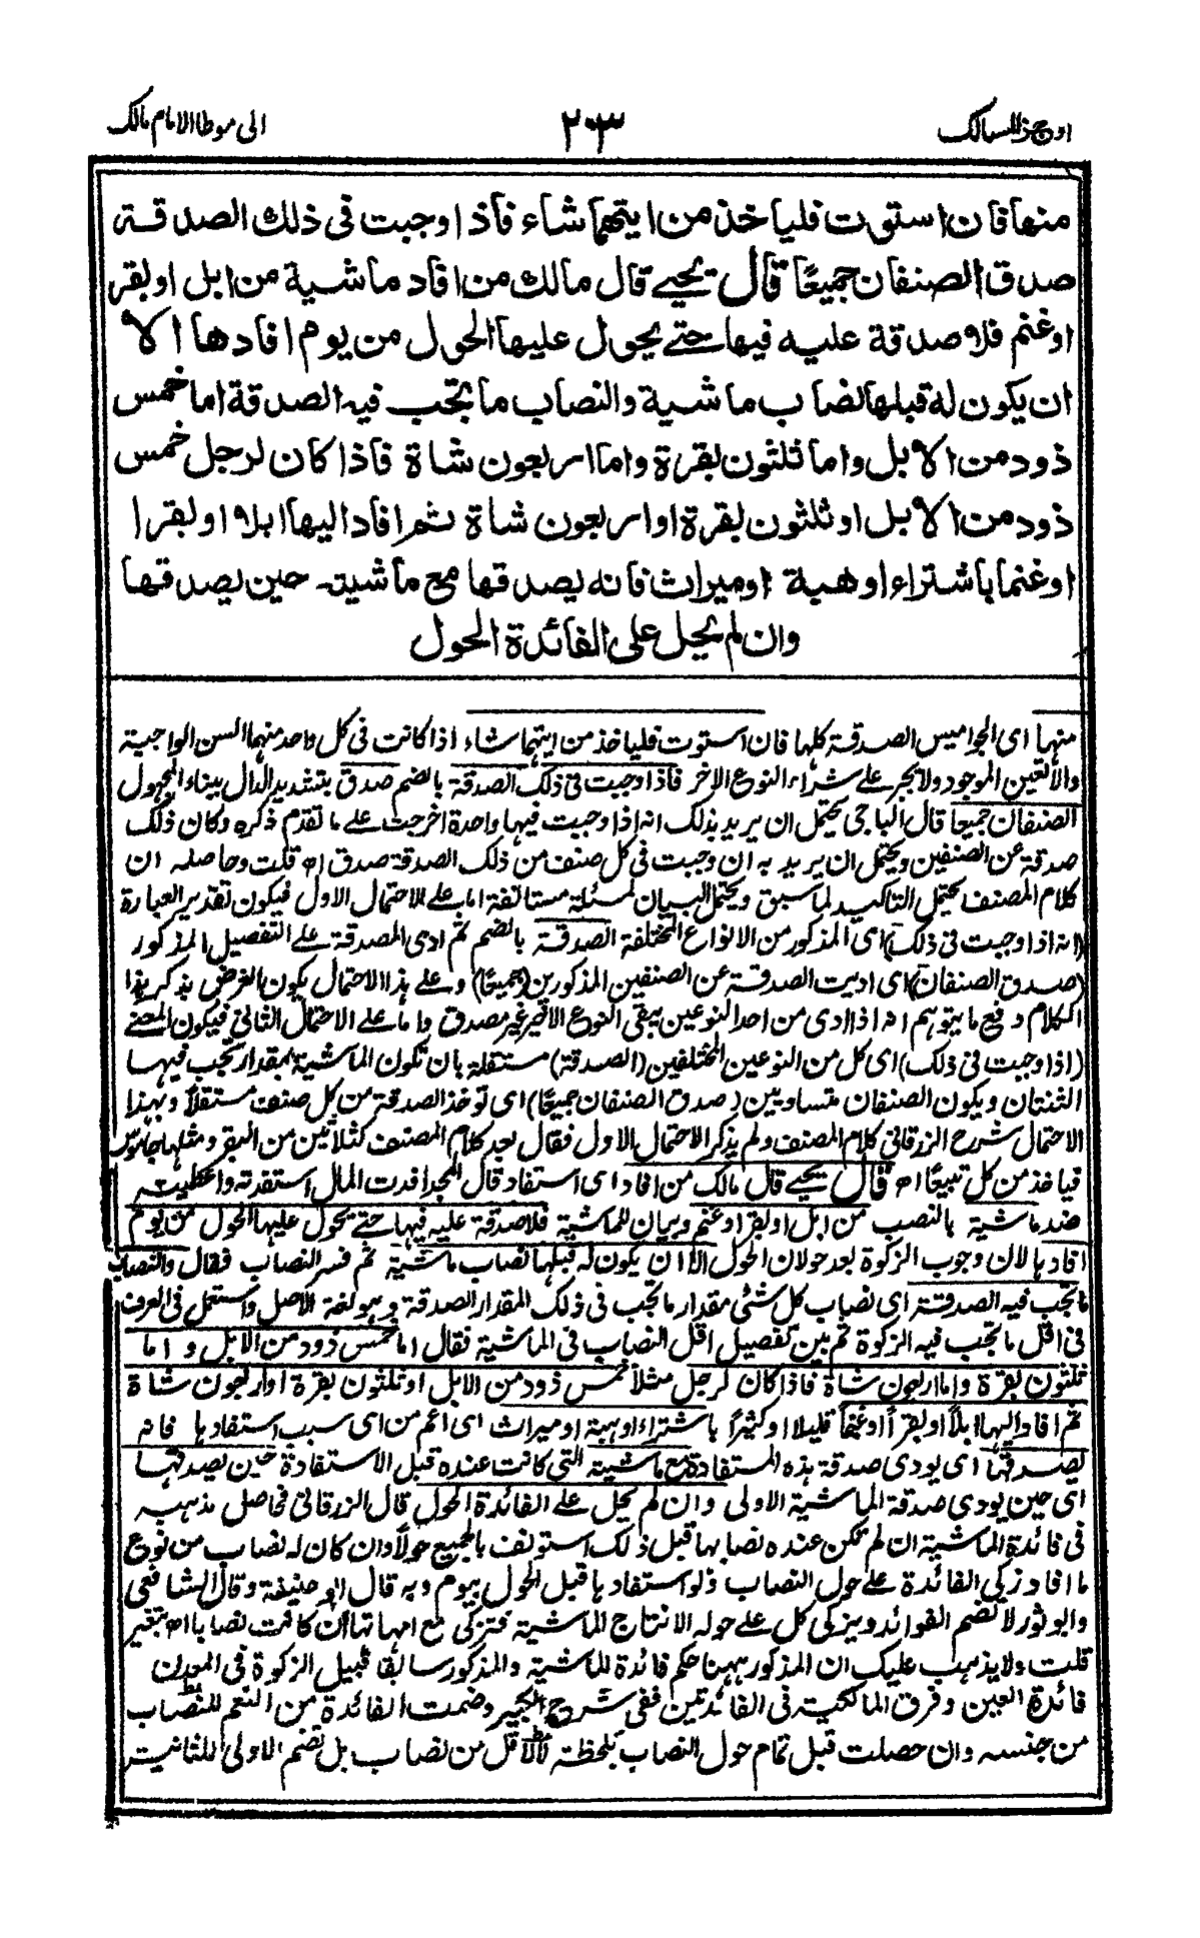 اوجز المسالك
٢٠٣
الى موطا الامام مالك
منها فان استوت فلياخذ من ايتهما شاء فاذا وجبت فى ذلك الصدقة
صدق الصنفان جميعًا قال يحيى قال مالك من افاد ماشية من ابل او بقر
او غنم فلا صدقة عليه فيها حتى يحول عليها الحول من يوم افادها الا
ان يكون له قبلها نصاب ماشية والنصاب ما تجب فيه الصدقة اما خمس
ذود من الابل واما ثلثون بقرة واما اربعون شاة فاذا كان لرجل خمس
ذود من الابل او ثلثون بقرة او اربعون شاة ثم افاد اليها ابلا او بقرا
او غنما باشتراء او هبة او ميراث فانه يصدقها مع ماشيته حين يصدقها
وان لم يحل على الفائدة الحول
منها اى الجواميس الصدقة كلها فان استوت فلياخذ من ايتهما شاء اذا كانت فى كل واحد منهما السن الواجبة
والا تعين الموجود ولا يجبر على شراء النوع الاخر فاذا وجبت فى ذلك الصدقة بالضم صدق بتشديد الدال ببناء المجهول
الصنفان جميعا قال الباجى يحتمل ان يريد بذلك انه اذا وجبت فيها واحدة اخرجت على ما تقدم ذكره وكان ذلك
صدقة عن الصنفين ويحتمل ان يريد به ان وجبت فى كل صنف من ذلك الصدقة صدق اھ قلت وحاصله ان
كلام المصنف يحتمل التاكيد لما سبق ويحتمل البيان لمسئلة مستانفة اما على الاحتمال الاول فيكون تقدير العبارة
(انه اذا وجبت فى ذلك) اى المذكور من الانواع المختلفة الصدقة بالضم ثم ادى المصدقة على التفصيل المذكور
(صدق الصنفان) اى اديت الصدقة عن الصنفين المذكورين (جميعًا) وعلى هذا الاحتمال يكون الغرض بذكر هذا
الكلام دفع ما يتوهم انه اذا ادى من احد النوعين يبقى النوع الاخير غير مصدق واما على الاحتمال الثانى فيكون المعنى
(اذا وجبت فى ذلك) اى كل من النوعين المختلفين (الصدقة) مستقلة بان تكون الماشية بمقدار تجب فيها
الثنتان ويكون الصنفان متساويين (صدق الصنفان جميعًا) اى توخذ الصدقة من كل صنف مستقلاً وبهذا
الاحتمال شرح الزرقانى كلام المصنف ولم يذكر الاحتمال الاول فقال بعد كلام المصنف كثلاثين من البقر ومثلها جاموس
فياخذ من كل تبيعًا اھ قال يحيى قال مالك من افاد اى استفاد قال المجد افدت المال استفدته واعطيته
ضد ماشية بالنصب من ابل او بقر او غنم وبيان للماشية فلا صدقة عليه فيها حتى يحول عليها الحول من يوم
افادها لان وجوب الزكوة بعد حولان الحول الا ان يكون له قبلها نصاب ماشية ثم فسر النصاب فقال والنصاب
ما تجب فيه الصدقة اى نصاب كل شئ مقدار ما تجب فى ذلك المقدار الصدقة وهو لغة الاصل واستعمل فى العرف
فى اقل ما تجب فيه الزكوة ثم بين تفصيل اقل النصاب فى الماشية فقال اما خمس ذود من الابل واما
ثلثون بقرة واما اربعون شاة فاذا كان لرجل مثلاً خمس ذود من الابل او ثلثون بقرة او اربعون شاة
ثم افاد اليها ابلاً او بقرًا او غنمًا قليلا او كثيرًا باشتراء او هبة او ميراث اى اعم من اى سبب استفادها فانه
يصدقها اى يودى صدقة هذه المستفادة مع ماشيته التى كانت عنده قبل الاستفادة حين يصدقها
اى حين يودى صدقة الماشية الاولى وان لم يحل على الفائدة الحول قال الزرقانى فحاصل مذهبه
فى فائدة الماشية ان لم تكن عنده نصابها قبل ذلك استونف بالجميع حولاً وان كان له نصاب من نوع
ما افاد زكى الفائدة على حول النصاب ولو استفادها قبل الحول بيوم وبه قال ابو حنيفة وقال الشافعى
وابو ثور لا تضم الفوائد ويزكى كل على حوله الا نتاج الماشية فتزكى مع امهاتها ان كانت نصابا اھ بتغير
قلت ولا يذهب عليك ان المذكور ههنا حكم فائدة الماشية والمذكور سابقًا قبيل الزكوة فى المعدن
فائدة العين وفرق المالكية فى الفائدتين ففى شرح الكبير وضمت الفائدة من النعم للنصاب
من جنسه وان حصلت قبل تمام حول النصاب بلحظة لا لاقل من نصاب بل تضم الاولى للثانية